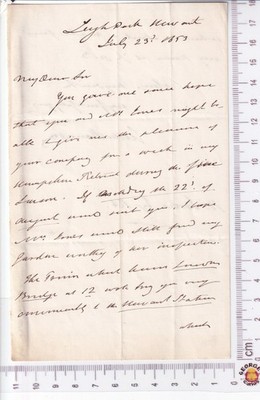 Leigh Park Havant
July 23d 1853
My Dear Sir
You gave me some hope
that you and Mrs Jones might be
able to give me the pleasure of
your company for a week in my
Hampshire Retreat during the
Season. If Monday the 22d of
August would suit you I hope
Mrs Jones would still find my
Garden worthy of her inspection.
The Train which leaves London
Bridge at 12 will bring you very
conveniently to the Havant Station